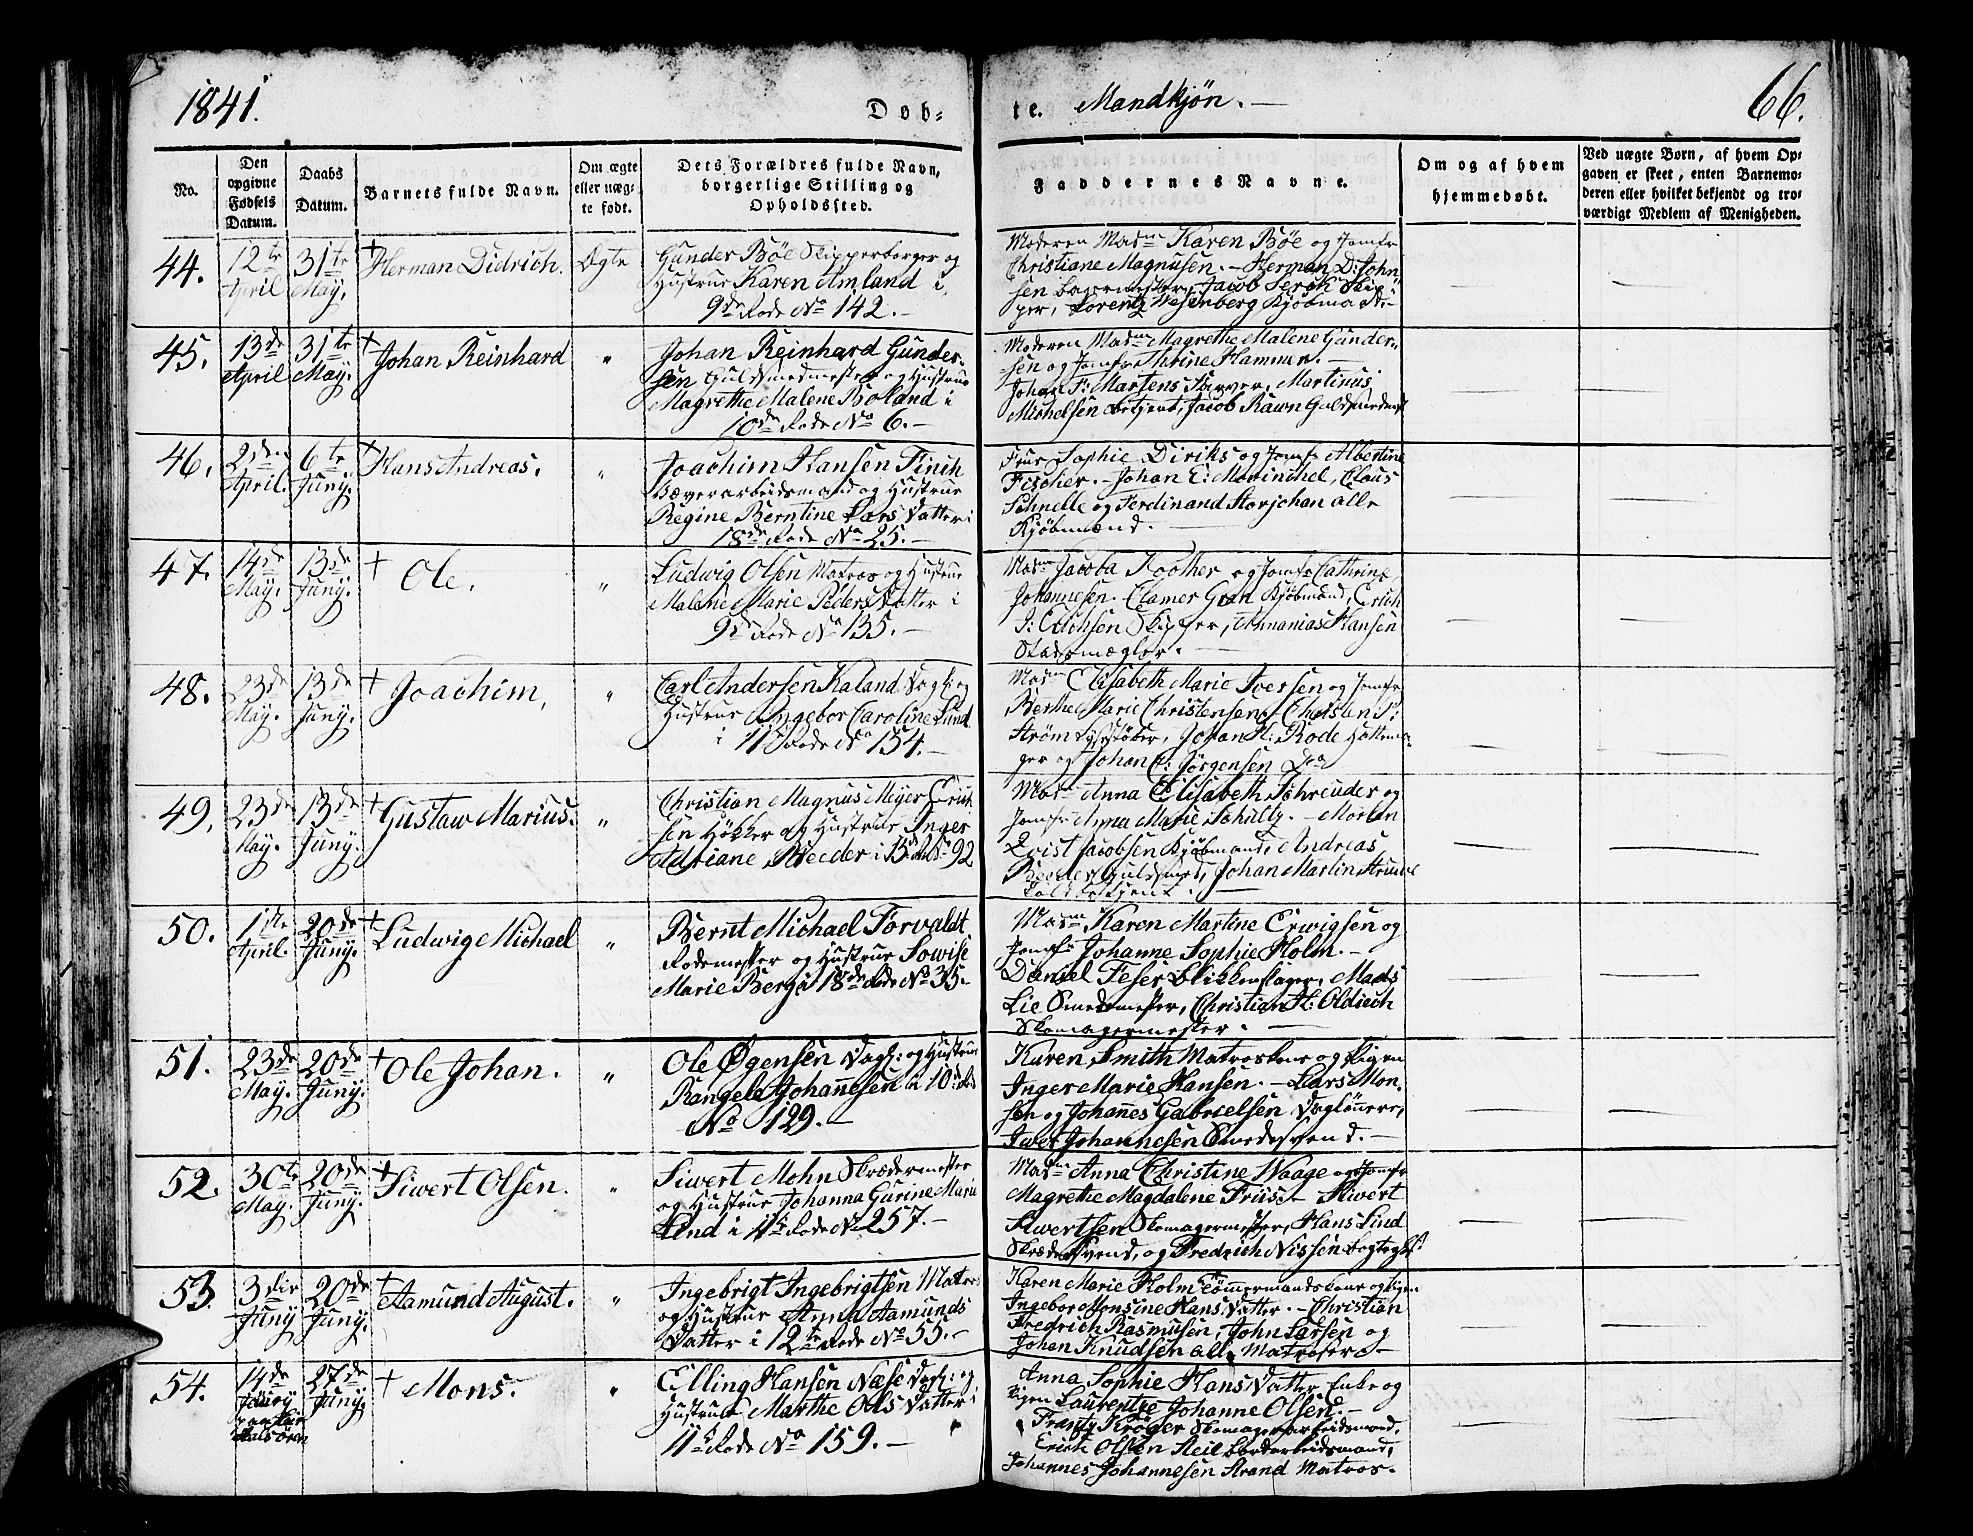 1841.
Døb-
te. Mandkjøn. —
66.
No.
Den opgivne Fødsels Datum.
Daabs Datum.
Barnets fulde Navn.
Om ægte eller uægte født.
Dets Forældres fulde Navn, borgerlige Stilling og Opholdssted.
Faddernes Navne.
Om og af hvem hjemmedøbt.
Ved uægte Børn, af hvem Opgaven er skeet, enten Barnemoderen eller hvilket bekjendt og troværdigt Medlem af Menigheden.
44.
12te April
31te May.
† Herman Didrich.
Ægte
Gunder Böe Skipperborger og
Hustrue Karen Amland i
9de Rode No 142. —
Moderen Madm Karen Böe og Jomfr
Christiane Magnusen. — Herman D: John
sen Bagermester, Jacob
per, Lorentz Wesenberg Kjöbmænd —
45.
13de April
31te May.
† Johan Reinhard
"
Johan Reinhard Gunder-
sen Guldsmedmester og Hustrue
Magrethe Malene Boland i
10de Rode No 6. —
Moderen Madm Magrethe Malene Gunder-
sen og Jomfr Thrine Hammer. —
Johan F: Martens Farver, Martinus
Michelsen Betjent, Jacob Rawn Guldsmedmst
46.
2den April.
6te Juny.
† Hans Andreas.
"
Joachim Hansen Finch
Bæverarbeidsmand og Hustrue
Regine Berntine Lars Datter i
18de Rode No 25. —
Frue Sophie Diriks og Jomfr Albertine
Fischer. — Johan E: Mowinchel, Claus
Schnelle og Ferdinand Storjohan alle
Kjöbmænd. —
47.
14de May.
13de Juny.
† Ole.
"
Ludwig Olsen Matros og Hustrue
Malene Marie Peders Datter i
9de Rode No 135. —
Madm Jacoba Roother og Jomfr Cathrine
Johannesen. Clamer Gran Kjöbmand, Erich
J: Erichsen Skipper, Annanias Hansen
Stadsmægler. —
48.
23de May.
13de Juny.
† Joachim,
"
Carl Andersen Kaland Dagk: og
Hustrue Ingebor Caroline Lund
i 11te Rode No 154. —
Madm Elisabeth Marie Iversen og Jomfr
Berthe Marie Christensen. Christen P:
Ström Lysestöber, Johan H: Rode Hattema-
ger og Johan C: Jörgensen Do
49.
23de May.
13de Juny.
† Gustaw Marius.
"
Christian Magnus Meyer Erich-
sen Hökker og Hustrue Inger
Adriane Reeder i 15de Rode No 92
Madm Anna Elisabeth Schreuder og
Jomfr Anna Marie Schultz. — Morten
Qvist Jacobsen Kjöbmand, Andreas
Reeder Guldsmed, Johan Martin
Toldbetjent. —
50.
1ste April.
20de Juny.
† Ludwig Michael
"
Bernt Michael Forvaldt
Rodemester og Hustrue Lowise
Marie Berg i 18de Rode No 35. —
Madm Karen Martine Erwigsen og
Jomfr Johanne Sophie Holm. —
Daniel Feser Blikkenslager, Mads
Lie Smedemester, Christian H: Oldiech
Skomagermester. —
51.
23de May.
20de Juny.
† Ole Johan.
"
Ole Ögensen Dagk: og Hustrue
Rangele Johannesen i 10de Rode
No 129. —
Karen Smith Matroskone og Pigen
Inger Marie Hansen. — Lars Mon-
sen og Johannes Gabrielsen Daglönnere,
Iwer Johannesen Smedesvend. —
52.
30te May.
20de Juny.
† Siwert Olsen.
"
Siwert Mohn Skrædermester
og Hustrue Johanna Gurine Maria
Lind i 11te Rode No 257. —
Madm Anna Christine Waage og Jomfr
Magrethe Magdalene Friis. — Siwert
Siwertsen Skomagermester, Hans Lind
Skrædersvend, og Fredrich Nissen
53.
3die Juny
20de Juny.
† Aamund August.
"
Ingebrigt Ingebrigtsen Matros
og Hustrue Anna Aamunds
Datter i 12te Rode No 55. —
Karen Marie Holm Tömmermandskone og Pigen
Ingebor Monsine Hans Datter. — Christian
Fredrich Rasmusen, John Larsen og
Johan Knudsen alle Matroser. —
54.
14de
27de Juny.
† Mons.
"
Elling Hansen Næse Dagk: og
Hustrue Marthe Ols Datter i
11te Rode No 159. —
Anna Sophie Hans Datter Enke og
Pigen Laurentze Johanne Olsen. —
Frantz Kröger Skomagerarbeidsmand,
Erich Olsen Steil Bordarbeidsmand,
Johannes Johannesen Strand Matros.